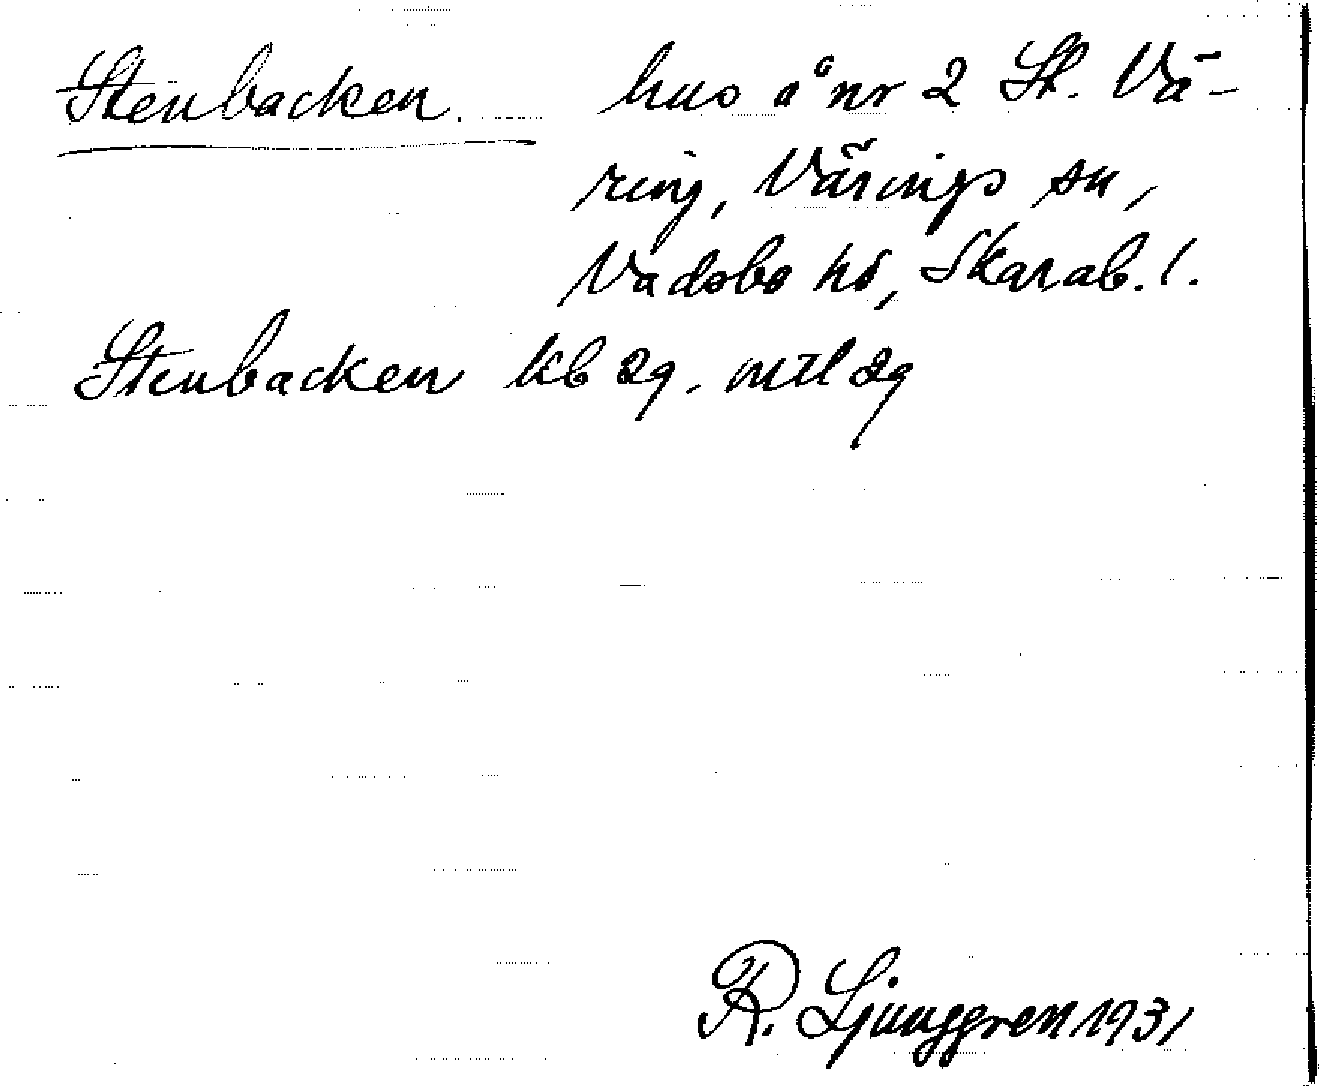 Stenbacken. hus å nr 2 St. Vä-
ring, Värings sn,
Vadsbo hd, Skarab. l.
Stenbacken kb 29. mtl 29
R. Ljunggren 1931